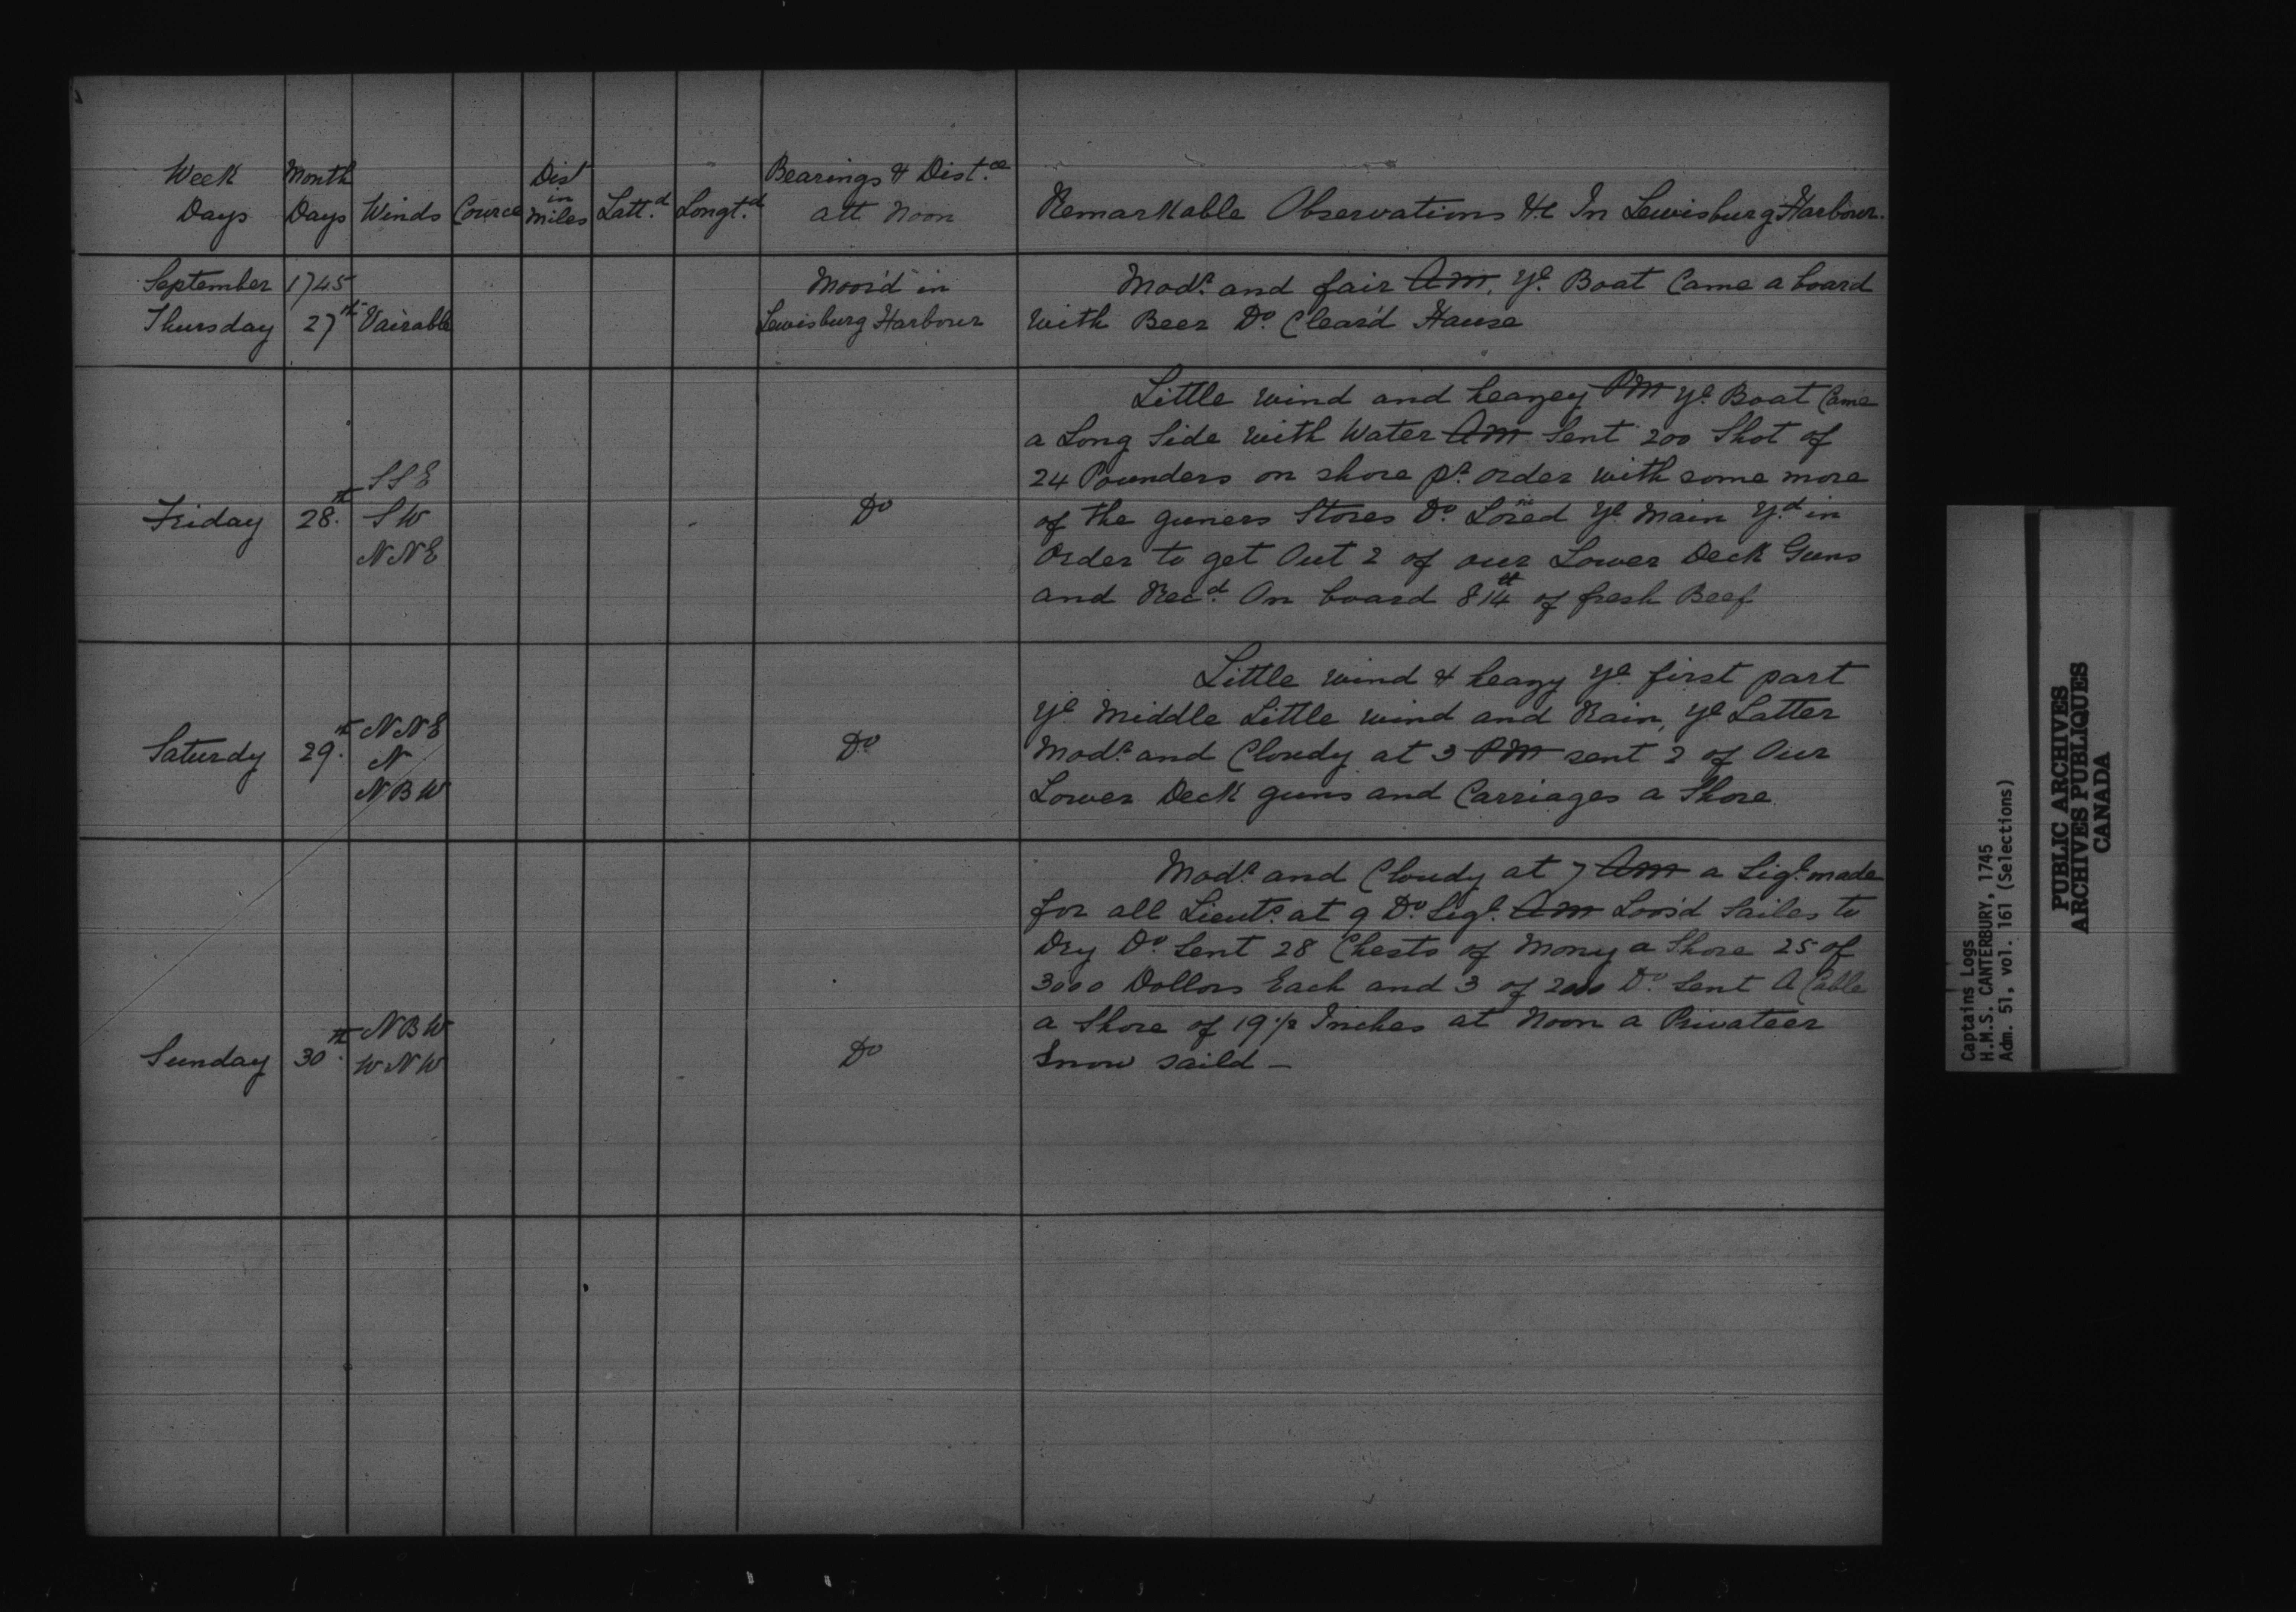 Week Days Month Days Winds Cource Dist in Miles Latt.d Longt.d Bearings & Dist.ce att Noon Remarkable Observations &c In Lewisburg Harbour.
September 1745
Thursday 27th Vairable
Moor'd in
Lewisburg Harbour
Mod.t and fair AM. Ye Boat Came a board
with Beer Do Clear'd Hause
Friday 28th
SSE
SW
NNE
Do
Little wind and heazey PM Ye Boat Came
a Long Side with Water AM Sent 200 Shot of
24 Pounders on shore pr order with some more
of the guners Stores Do. Lored Ye Main Y.d in
Order to get Out 2 of our Lower Deck Guns
and Rec.d On board 814 lb of fresh Beef
Saturdy 29th
NNE
N
NBW
Do
Little wind & heazy Ye first part
Ye Middle Little wind and Rain, Ye Latter
Mod.t and Cloudy at 3 PM sent 2 of Our
Lower Deck guns and Carriages a Shore.
Sunday 30th
NBW
WNW
Do
Mod.t and Cloudy at 7 AM a Sigl. made
for all Lieuts. at 9 Do. Sigl. AM Loos'd Sailes to
Dry Do Sent 28 Chests of Mony a Shore 25 of
3000 Dollors Each and 3 of 2000 Do. Sent A Cable
a Shore of 19 1/2 Inches at Noon a Privateer
Snow saild —
Captains Logs
H.M.S. CANTERBURY, 1745
Adm. 51, vol. 161 (Selections)
PUBLIC ARCHIVES
ARCHIVES PUBLIQUES
CANADA